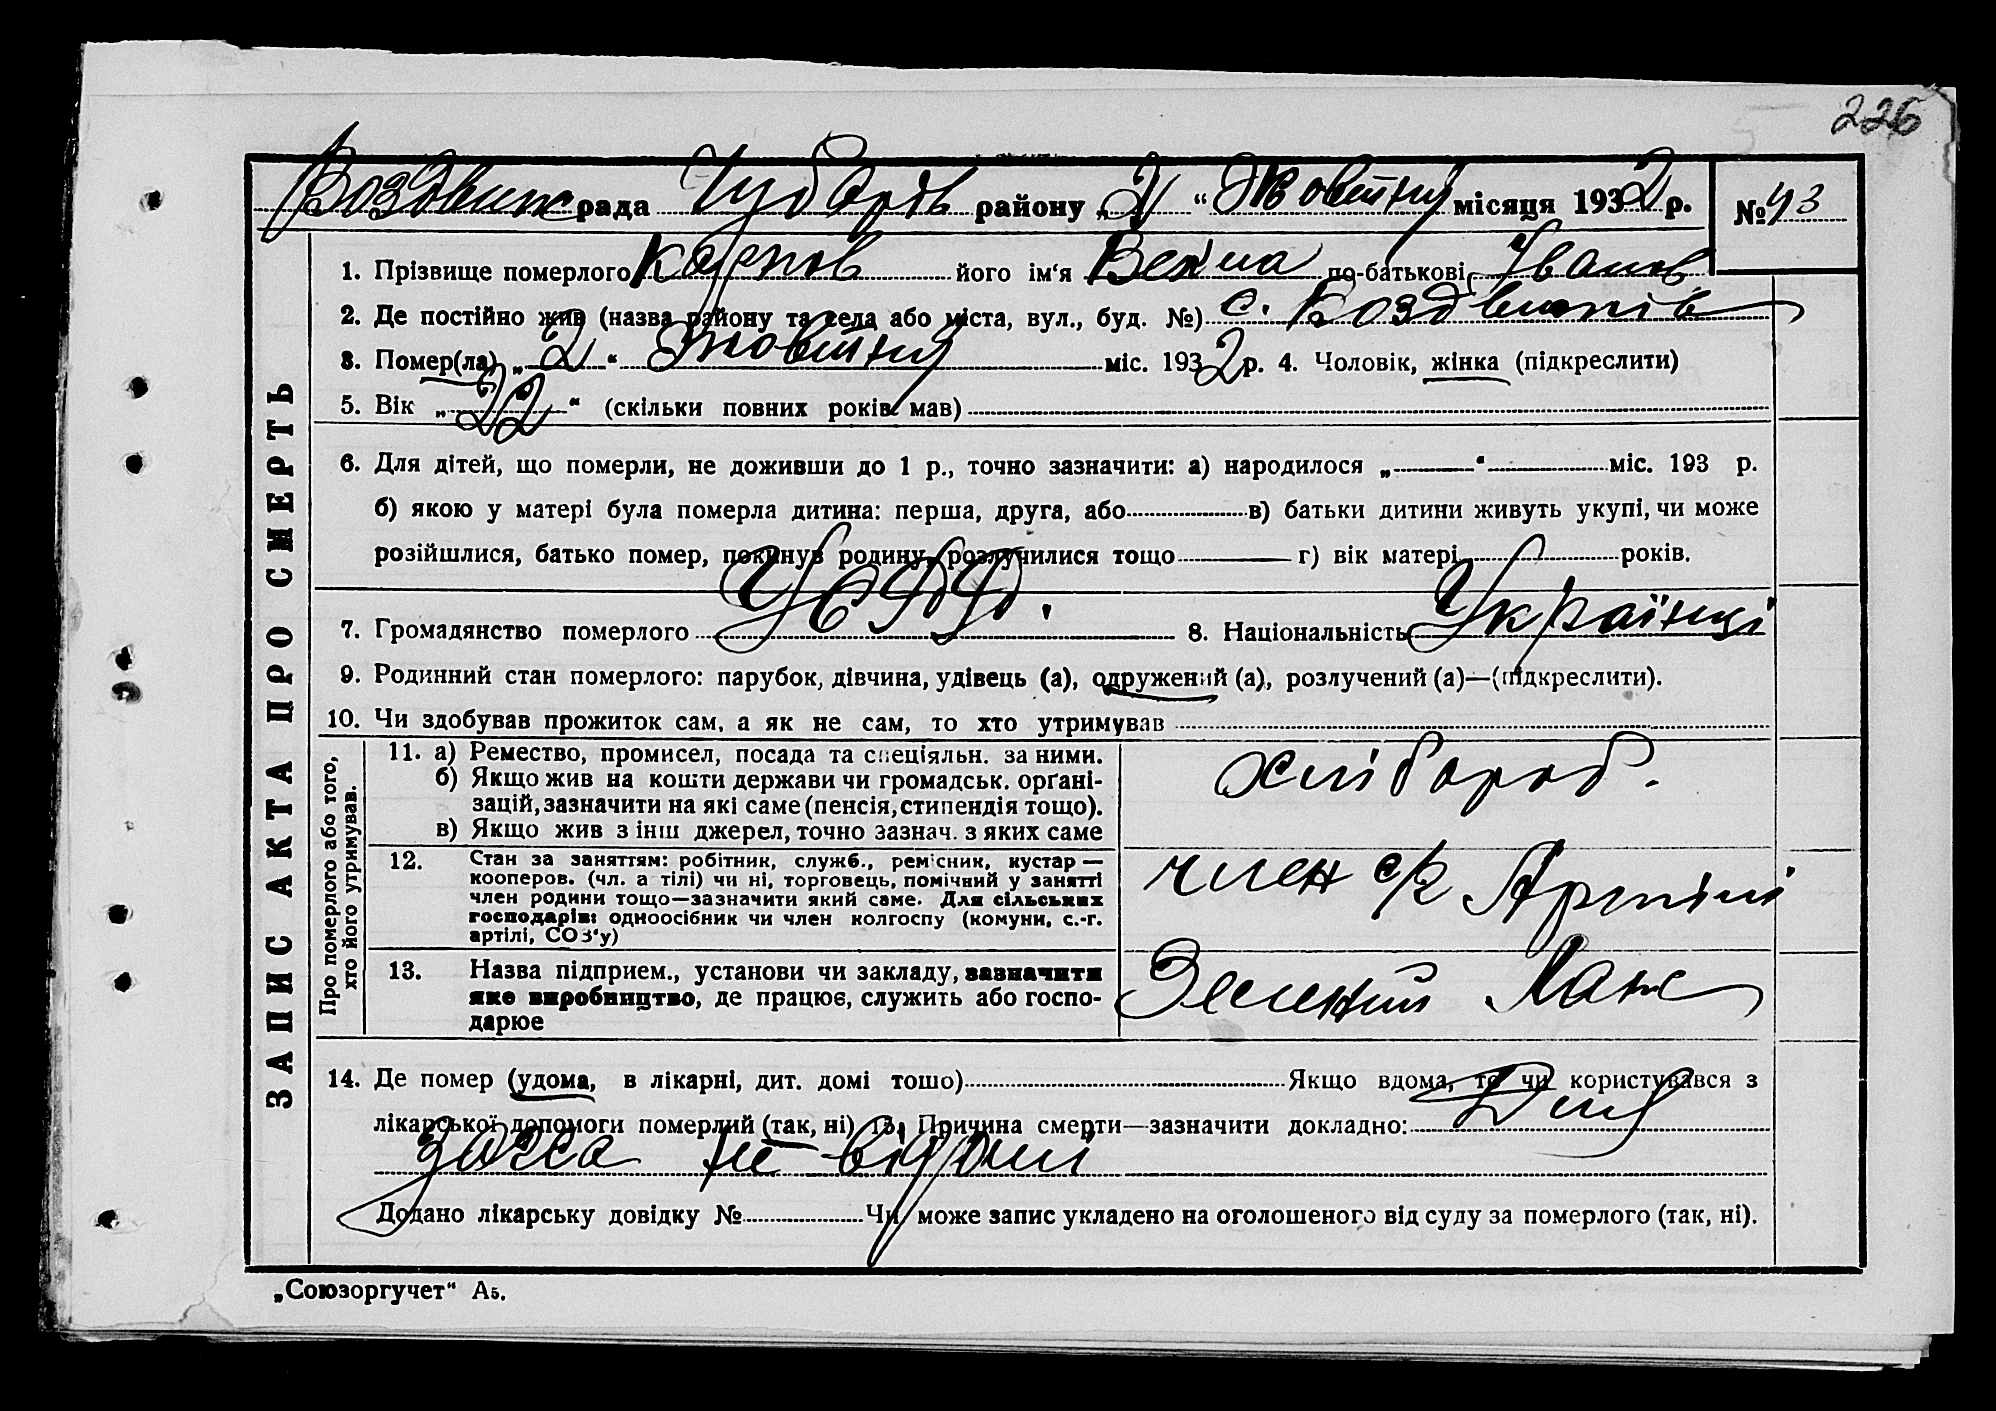 226
Воздвиж рада Чубарів району „2“ Жовтня місяця 1932 р. № 43
1. Прізвище померлого Карпов його ім‘я по-батькові Іванов
2. Де постійно жив (назва району та села або міста, вул., буд. №) с. Воздвижів
3. Помер(ла) „2“ Жовтня міс. 1932 р. 4. Чоловік, жінка (підкреслити)
5. Вік „22“ (скільки повних років мав)
6. Для дітей, що померли, не доживши до 1 р., точно зазначити: а) народилося „ “ міс. 193 р.
б) якою у матері була померла дитина: перша, друга, або в) батьки дитини живуть укупі, чи може
розійшлися, батько помер, покинув родину, розлучилися тощо г) вік матері років.
7. Громадянство померлого УСРР. 8. Національність Українці
9. Родинний стан померлого: парубок, дівчина, удівець (а), одружений (а), розлучений (а)—(підкреслити).
10. Чи здобував прожиток сам, а як не сам, то хто утримував
ЗАПИС АКТА ПРО СМЕРТЬ
Про померлого або того,
хто його утримував.
11. а) Ремество, промисел, посада та спеціяльн. за ними.
б) Якщо жив на кошти держави чи громадськ. орґані-
зацій, зазначити на які саме (пенсія, стипендія тощо).
в) Якщо жив з інш джерел, точно зазнач. з яких саме
хлібороб.
12. Стан за заняттям: робітник, служб., ремісник, кустар —
кооперов. (чл. а тілі) чи ні, торговець, помічний у занятті
член родини тощо—зазначити який саме. Для сільських
господарів: одноосібник чи член колгоспу (комуни, с.-г.
артілі, СОЗ‘у)
член с/г Артілі
13. Назва підприєм., установи чи закладу, зазначити
яке виробництво, де працює, служить або госпо-
дарює
Зелений Лан
14. Де помер (удома, в лікарні, дит. домі тошо) Якщо вдома, то чи користувався з
лікарської допомоги померлий (так, ні) 15. Причина смерти—зазначити докладно:
не відомі
Додано лікарську довідку № Чи може запис укладено на оголошеного від суду за померлого (так, ні).
„Союзоргучет“ А5.